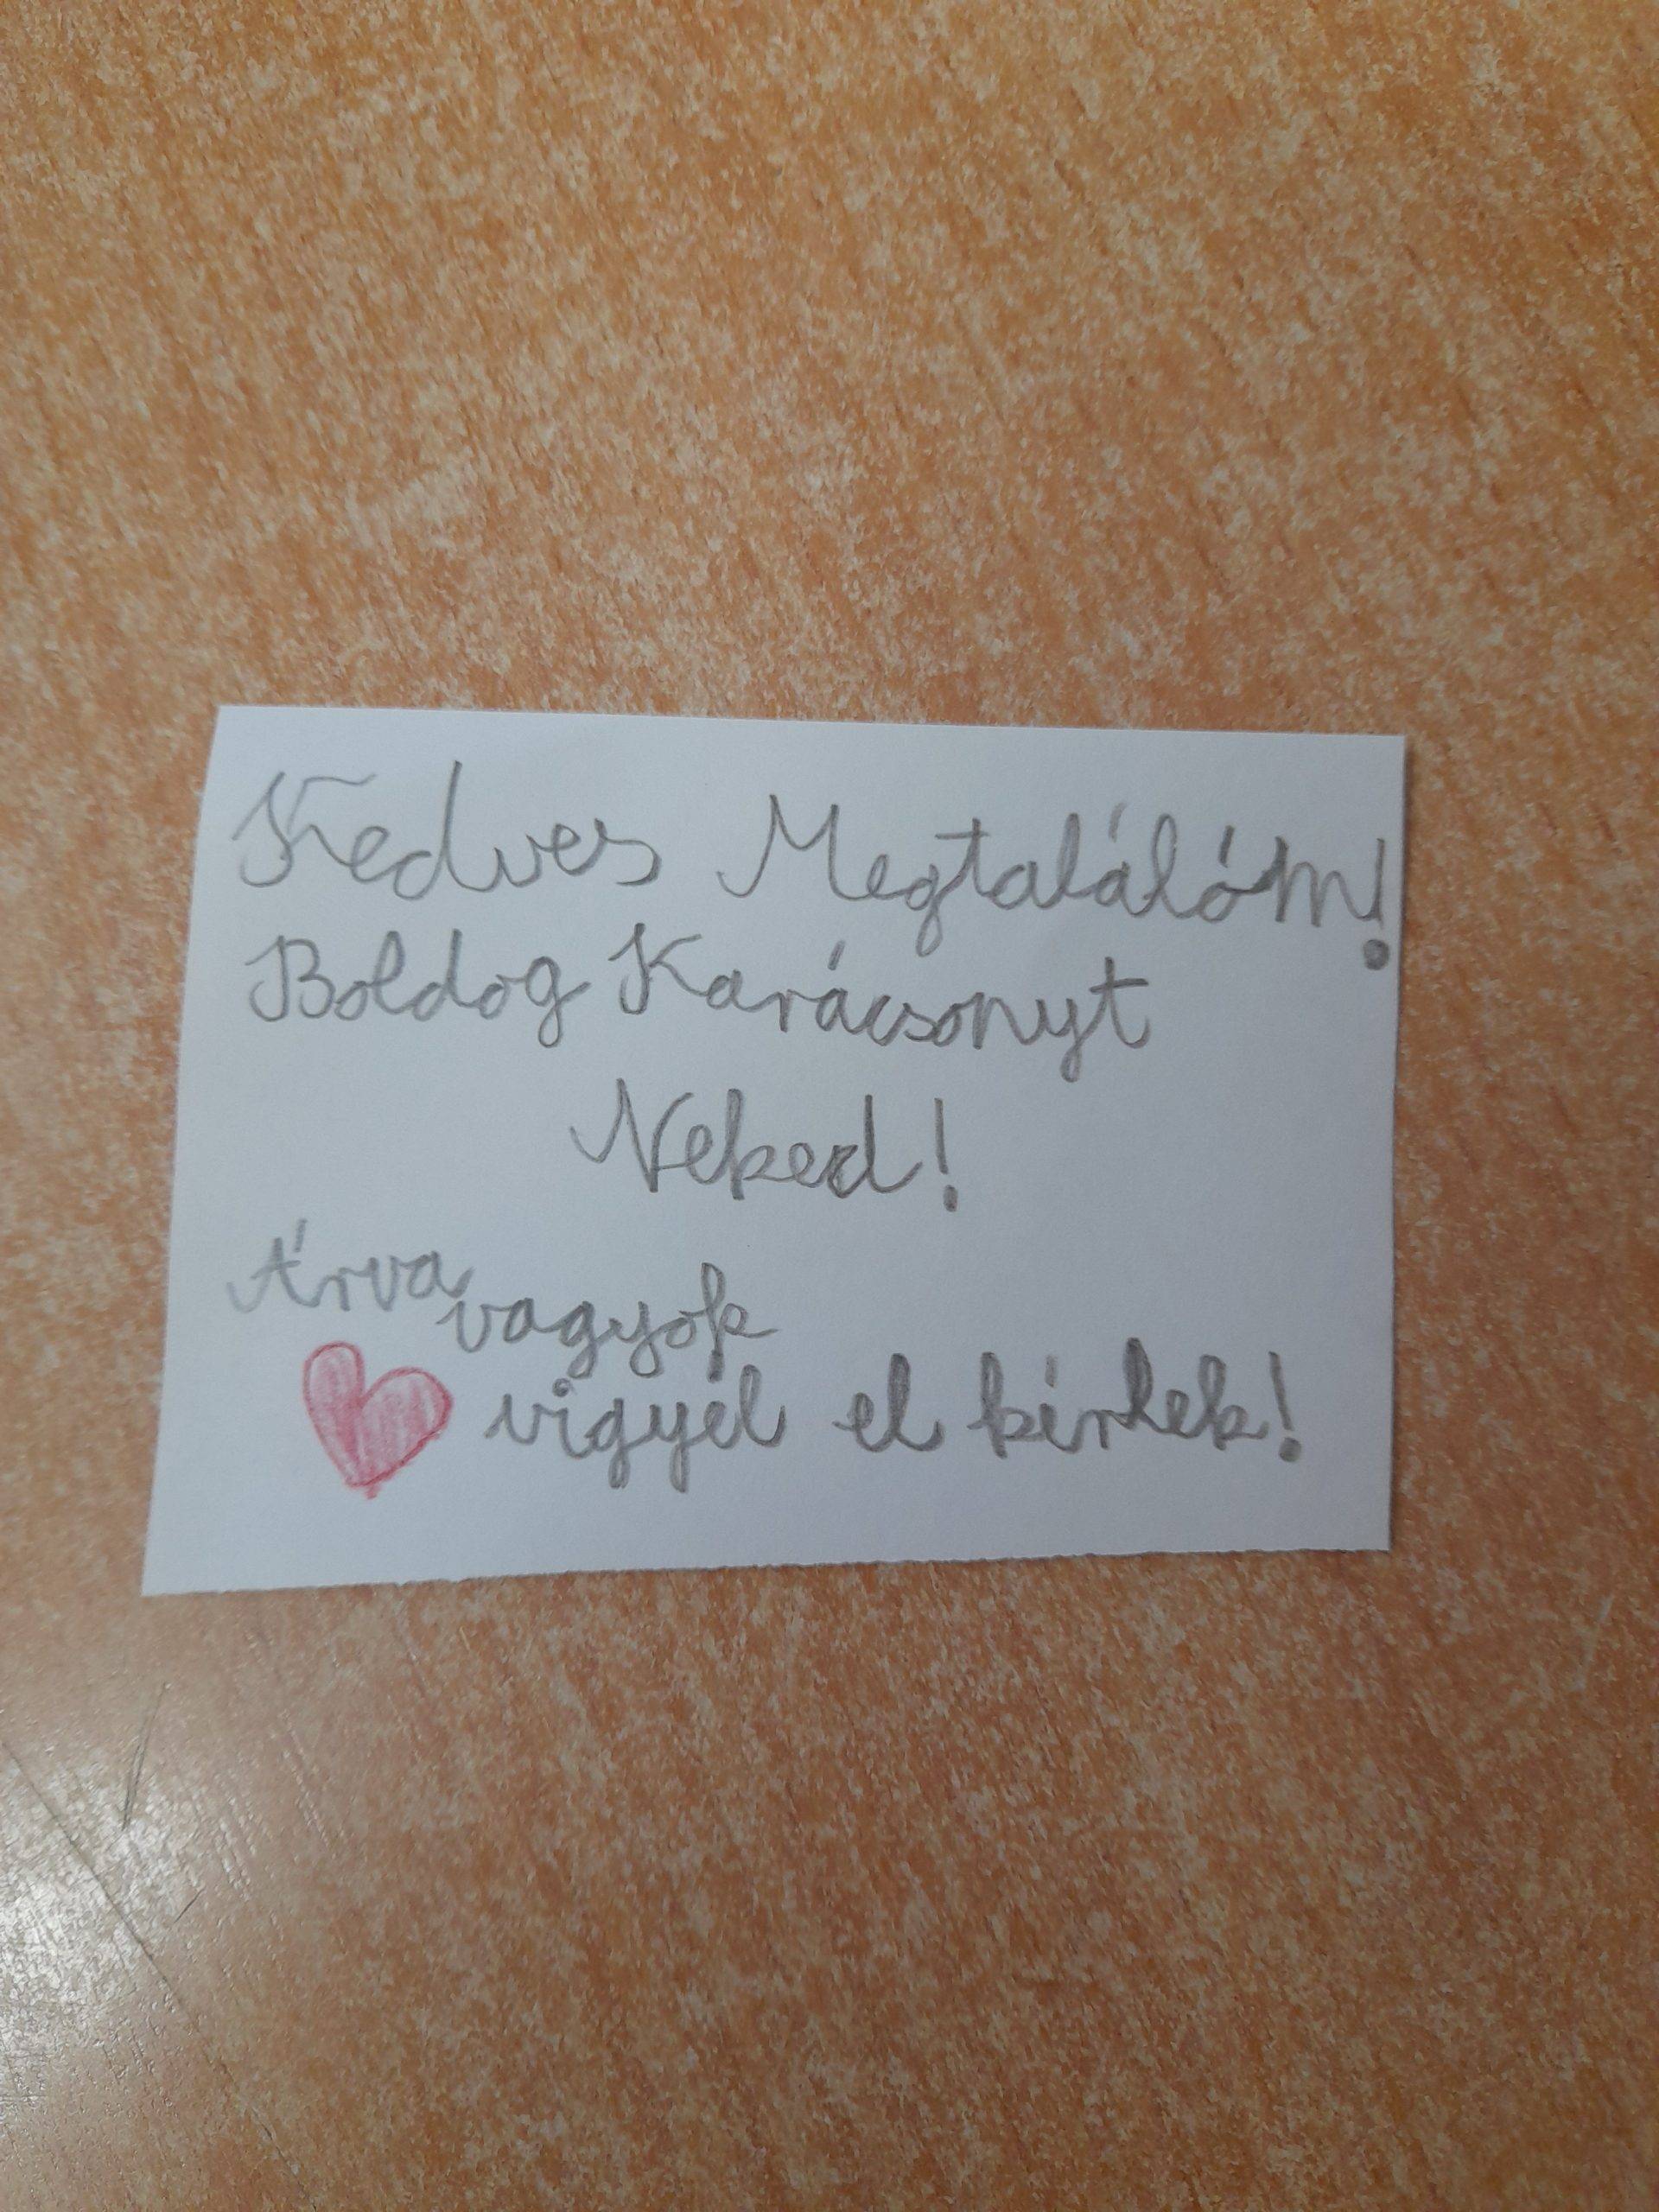 Kedves Megtalálóm!
Boldog Karácsonyt
Neked!
Árva vagyok
vigyél el kérlek!